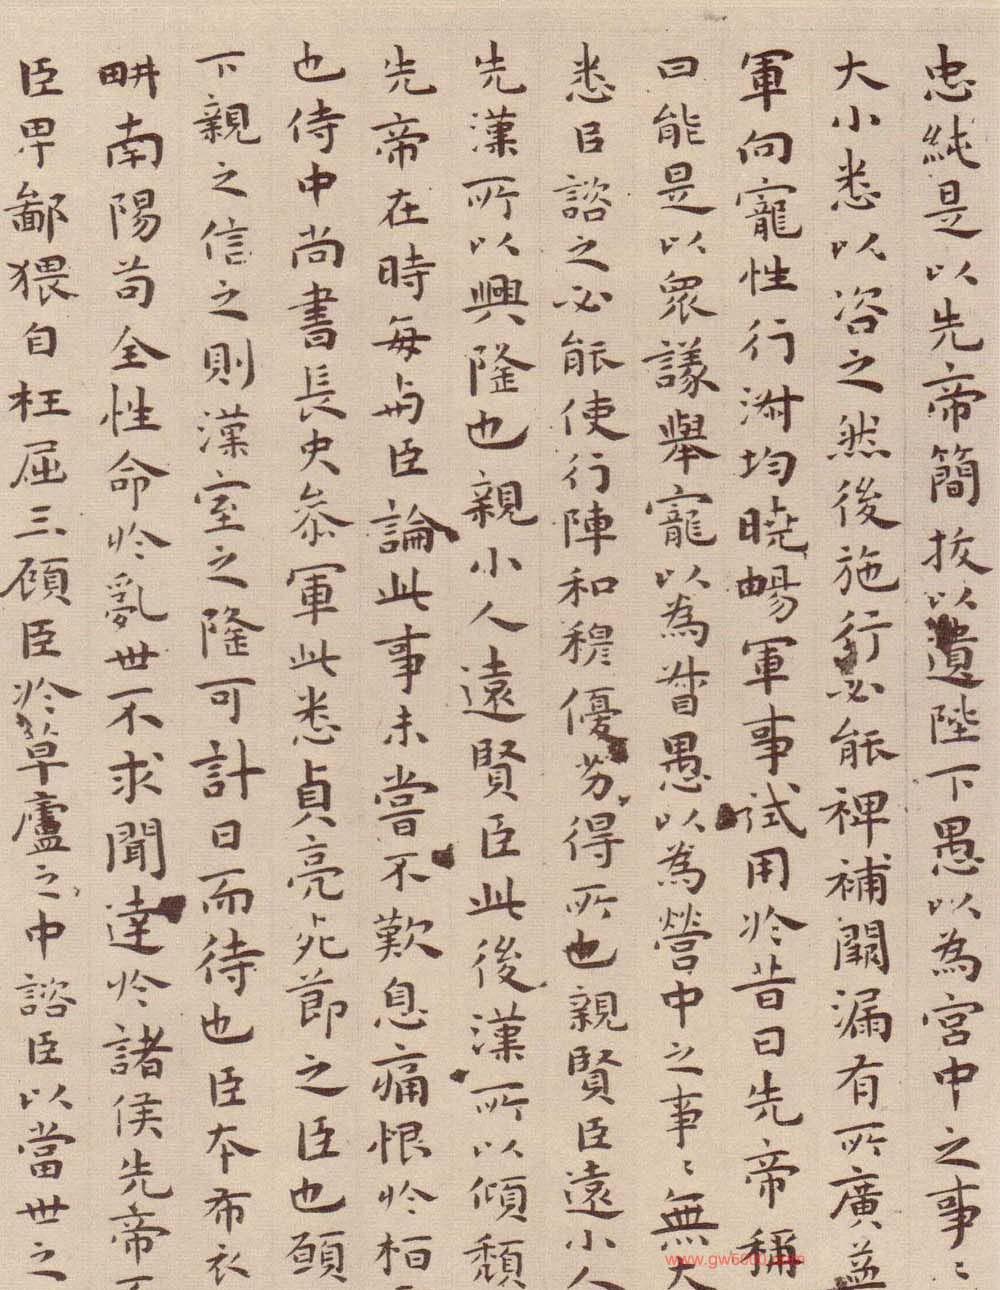 忠純是以先帝簡拔以遺陛下愚以為宮中之事〻
大小悉以咨之然後施行必能裨補闕漏有所廣益
軍向寵性行淑均曉暢軍事試用於昔日先帝稱
曰能是以眾議舉寵以為督愚以為營中之事〻無大
悉㠯諮之必能使行陣和穆優劣得所也親賢臣遠小人
先漢所以興隆也親小人遠賢臣此後漢所以傾頹
先帝在時每與臣論此事未嘗不歎息痛恨於桓
也侍中尚書長史參軍此悉貞亮死節之臣也願
下親之信之則漢室之隆可計日而待也臣本布衣
畊南陽苟全性命於亂世不求聞達於諸侯先帝
臣卑鄙猥自枉屈三顧臣於草廬之中諮臣以當世之